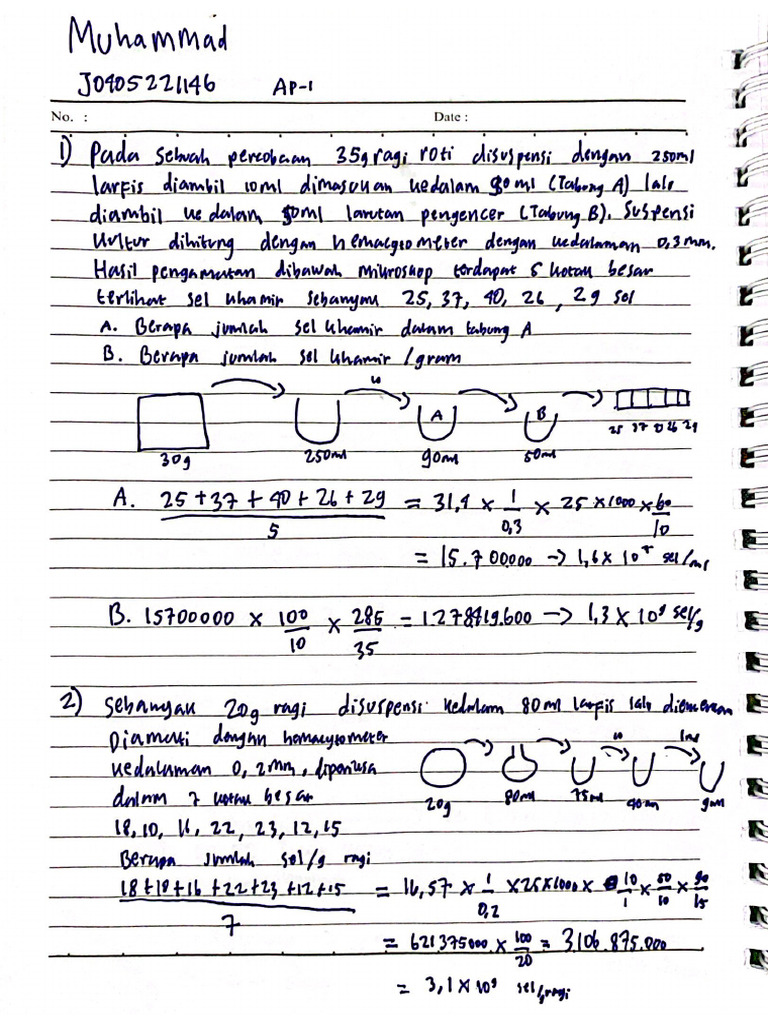 Muhammad
J0405221146 AP-1
No. : Date :
1) Pada sebuah percobaan 35g ragi roti disuspensi dengan 250ml
larfis diambil 10ml dimasukan kedalam 90ml (Tabung A) lalu
diambil ke dalam 50ml larutan pengencer (Tabung B). Suspensi
kultur dihitung dengan hemacytometer dengan kedalaman 0,3mm.
Hasil pengamatan dibawah mikroskop terdapat 5 kotak besar
terlihat sel khamir sebanyak 25, 37, 40, 26, 29 sel
A. Berapa jumlah sel khamir dalam tabung A
B. Berapa jumlah sel khamir /gram
10
A B
30g 250ml 90ml 50ml 25 37 26 29
A. 25 + 37 + 40 + 26 + 29 / 5 = 31,4 × 1/0,3 × 25 × 1000 × 60/10
= 15.700000 → 1,6 × 10 sel/ml
B. 15700000 × 100/10 × 285/35 = 1278419.600 → 1,3 × 10⁹ sel/g
2) Sebanyak 20g ragi disuspensi kedalam 80ml larfis lalu
Diamati dengan hemacytometer
kedalaman 0,2mm, diperiksa
dalam 7 kotak besar
10 1ml
20g 80ml 75ml 40ml 9ml
18, 10, 16, 22, 23, 12, 15
Berapa jumlah sel/g ragi
18+10+16+22+23+12+15 / 7 = 16,57 × 1/0,2 × 25×1000 × 10/1 × 50/10 × 90/15
= 621375000 × 100/20 = 3.106.875.000
= 3,1 × 10⁹ sel/g ragi